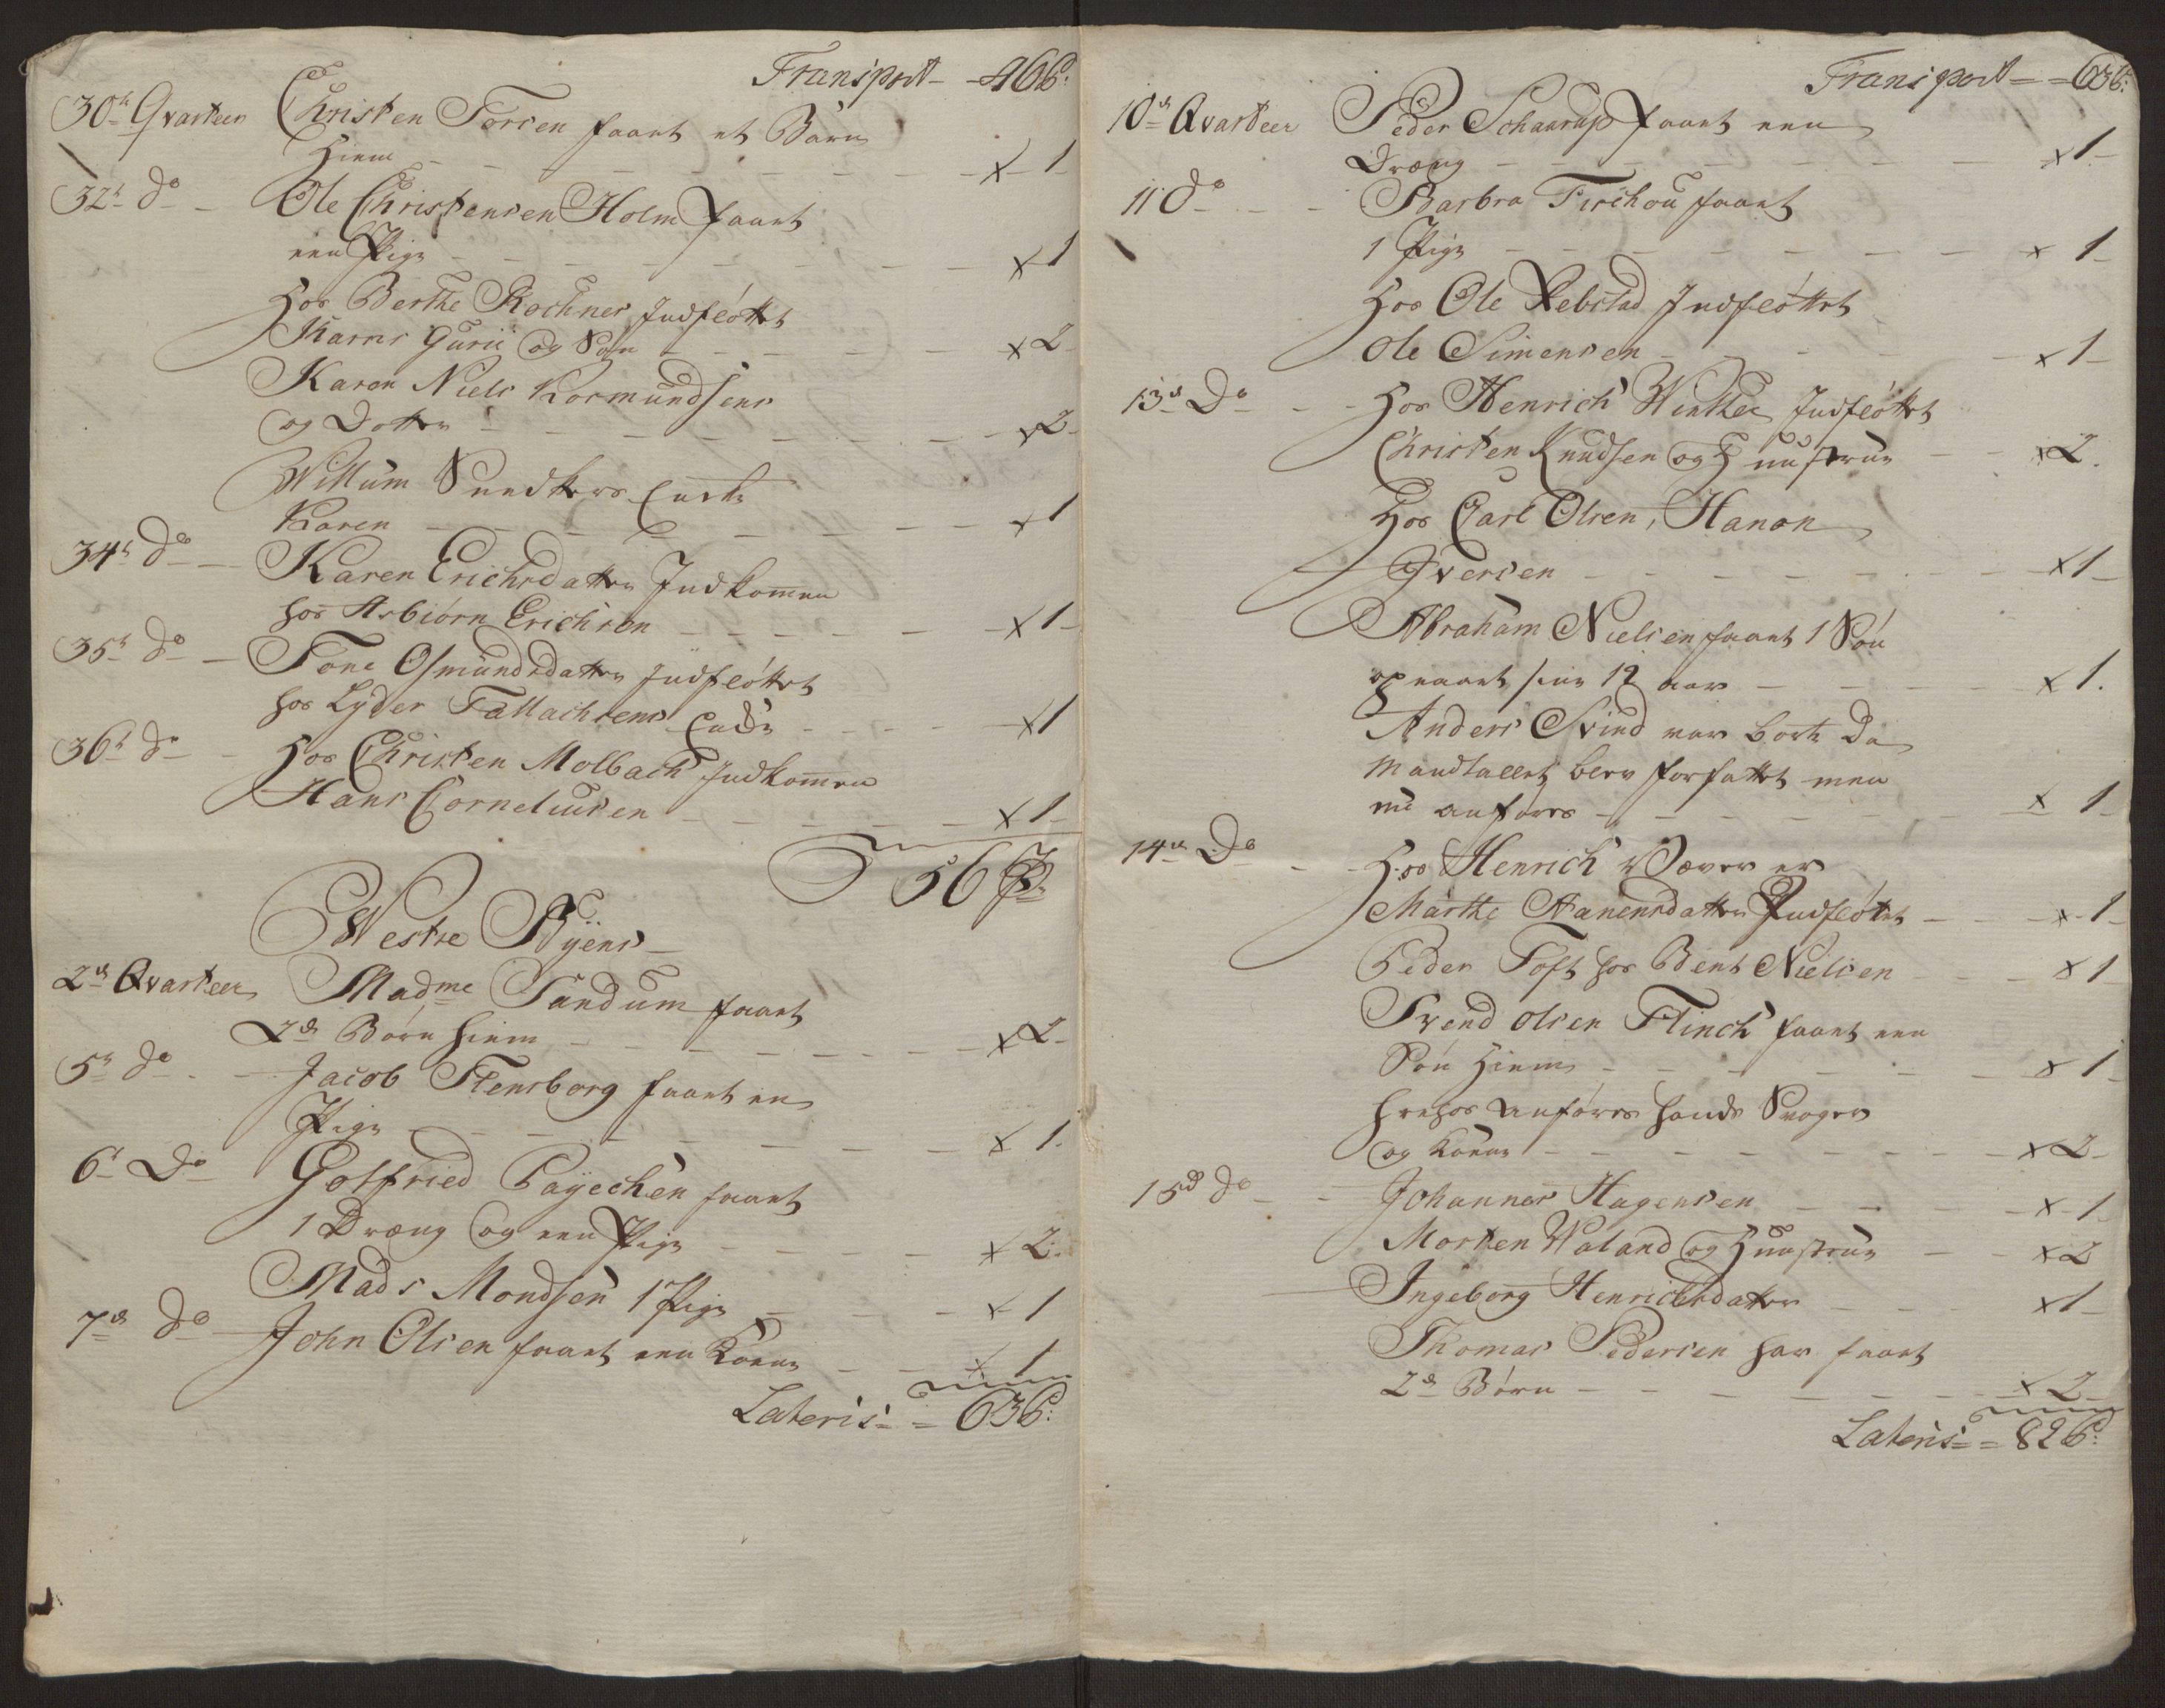 Transport - 46 P:
30te Qvarteer Christen Torsen faaet et Barn
hiem - - - x 1
32te do - Ole Christensen Holm faaet
een Pige - - - x 1
hos Berthe Kochner Indflöttet
Karns Gurii og Søn - - - x 2
Karen Niels Rosmundsens
og Dotter - - - x 2
Willum Sundkers Encke
Karen - - - x 1
34te do - Karen Erichsdatter Indkommen
hos Asbiørn Erichsen - - - x 1
35te do - Tone Osmundsdatter Indflöttet
hos Lyder Tallachsens Encke - - - x 1
36te do - hos Christen Molbach Indkommen
Hans Corneliusen - - - x 1
56 P:
Westre Byens
2den Qvarteer Madme Sandum faaet
2de Börn hiem - - - x 2
5te do - Jacob Flensborg faaet en
Pige - - - x 1
6te Do Gotfried Payechen faaet
1 Dreng og een Pige - - - x 2
Mads Mondsen 1 Pige - - x 1
7de do - John Olsen faaet een Kone - - x 1
Lateris = 63 P:
Transport - = 63 P:
10de Qvarteer Peder Schaarup faaet een
Dreng - - - x 1
11 do - - Barbra Tirchou faaet
1 Pige - - - x 1
hos Ole Rebstad Indflöttet
Ole Simensen - - - x 1
13de Do - - hos Henrich Winther Indflöttet
Christen Knudsen og Huustrue - - x 2
hos Carl Olsen, Hanon
Iversen - - - x 1
Abraham Nielsen faaet 1 Sön
opnaaet sine 12 aar - - - x 1
Anders Svind var borte da
Mandtallet blev forfattet men
nu anföres - - - x 1
14de Do - - hos Henrich Væver er
Marthe Hanensdatter Indflöttet - - x 1
Peder Toft hos Bent Nielsen - - x 1
Svend Olsen Flinch faaet een
Sön hiem - - - x 1
hrehos anföres hands Svoger
og Kone - - - x 2
15de do - - Johannes Hagensen - - - x 1
Morten Waland og Huustrue - - x 2
Ingeborg Henrichsdatter - - x 1
Thomas Pedersen har faaet
2de Börn - - - x 2
Lateris = = 82 P: